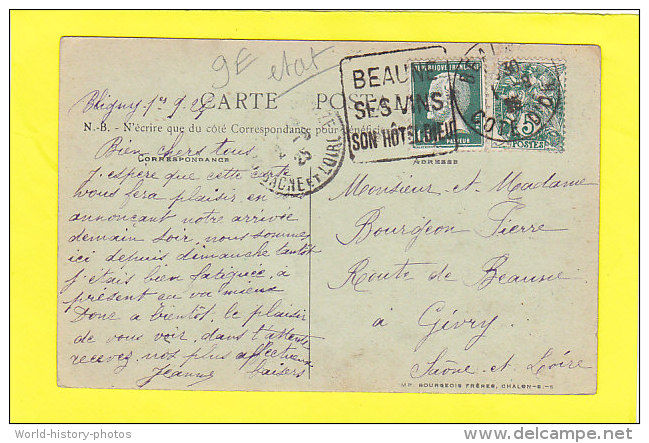 9E état
Bligny 1er 9. 25
CARTE POSTALE
N.-B. - N'écrire que du côté Correspondance pour bénéficier
CORRESPONDANCE
ADRESSE
BEAUNE
SES VINS
SON HÔTEL DIEU
RÉPUBLIQUE FRANÇAISE
PASTEUR
5
POSTES
COTE D'OR
SAONE ET LOIRE
Bien chers tous
J'espère que cette carte
vous fera plaisir en
annoncant notre arrivée
demain soir, nous sommes
ici depuis dimanche tantôt
j'étais bien fatiguée, a
présent ca va mieux
Donc a bientôt, le plaisir
de vous voir, dans l'attente
recevez nos plus affectueux
baisers
Jeanne
Monsieur et Madame
Bourgeon Pierre
Route de Beaune
à Givry
Saône et Loire
MP. BOURGEOIS FRÈRES, CHALON-S-S
World-history-photos
delcampe.net